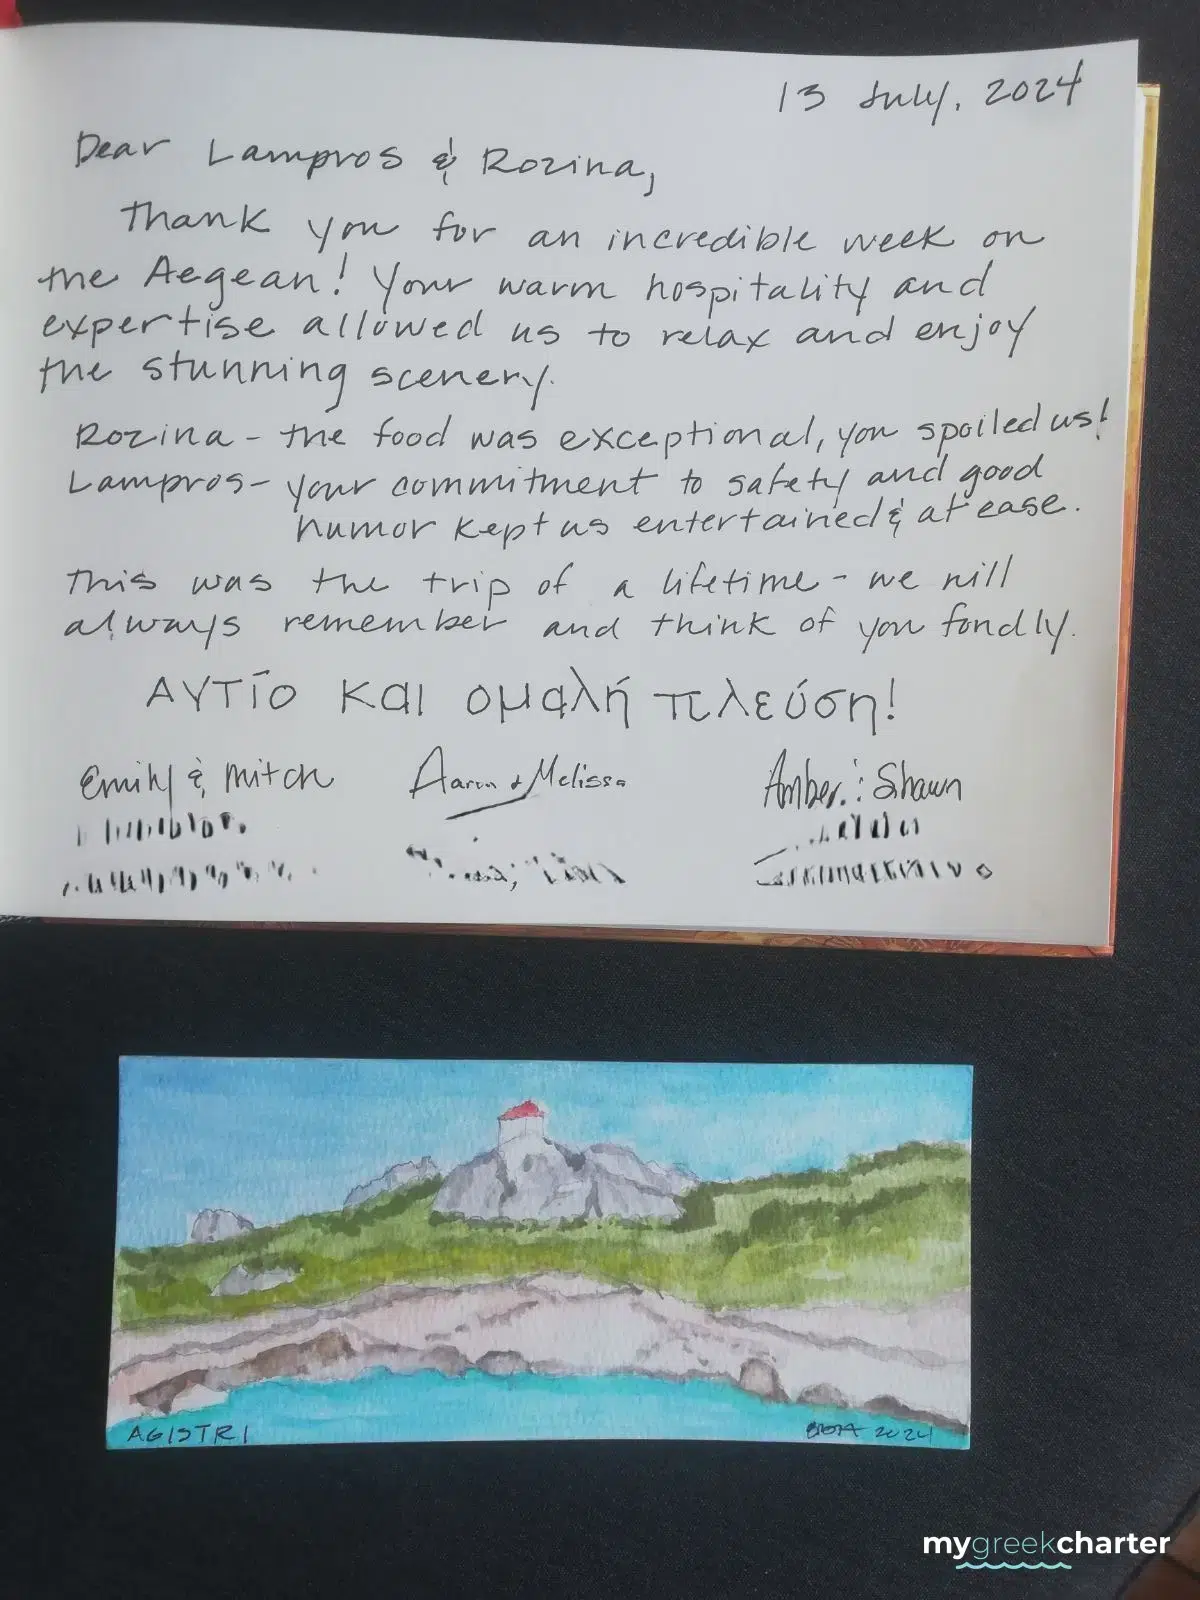 13 July, 2024
Dear Lampros & Rozina,
Thank you for an incredible week on
the Aegean! Your warm hospitality and
expertise allowed us to relax and enjoy
the stunning scenery.
Rozina - the food was exceptional, you spoiled us!
Lampros - your commitment to safety and good
humor kept us entertained & at ease.
This was the trip of a lifetime - we will
always remember and think of you fondly.
Αντίο και ομαλή πλεύση!
Emily & Mitch Aaron & Melissa Amber & Shawn
AGISTRI 2024
mygreekcharter